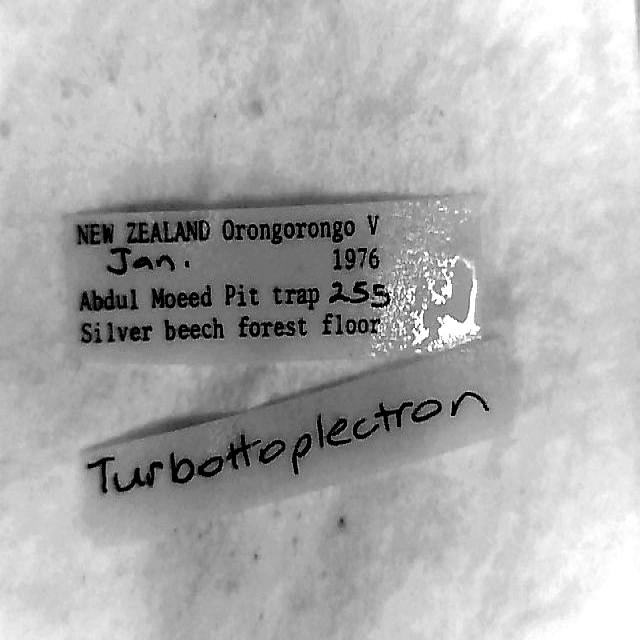 NEW ZEALAND Orongorongo V
Jan. 1976
Abdul Moeed Pit trap 255
Silver beech forest floor
Turbottoplectron